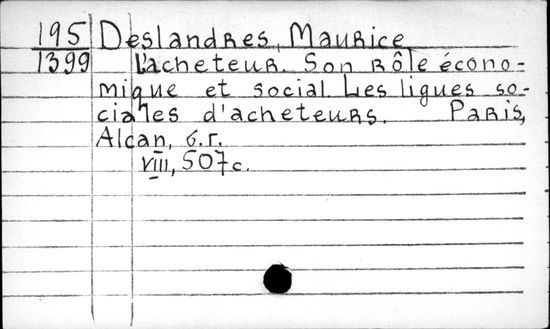 195 Deslandres, Maurice
1399 L'acheteur. Son rôle écono-
mique et social. Les ligues so-
ciales d'acheteurs. Paris,
Alcan, б.г.
VIII, 507с.